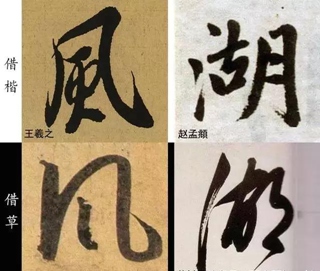 借楷
風
湖
王羲之
赵孟頫
借草
风
湖